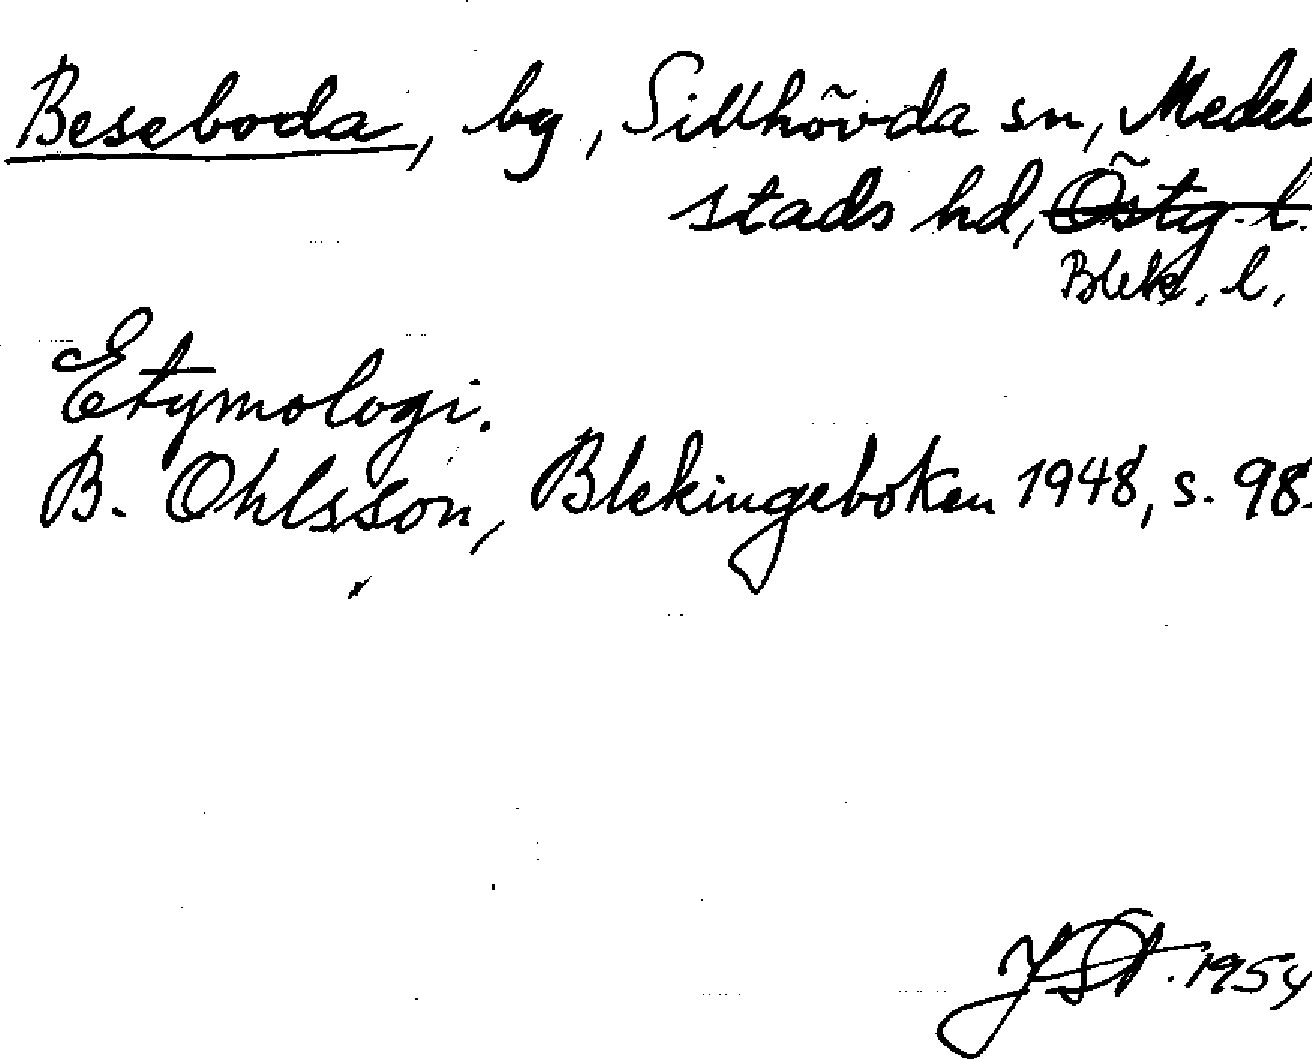 Beseboda, by, Sillhövda sn, Medel
stads hd, Östg. l.
Blek. l.
Etymologi.
B. Ohlsson, Blekingeboken 1948, s. 98.
1954